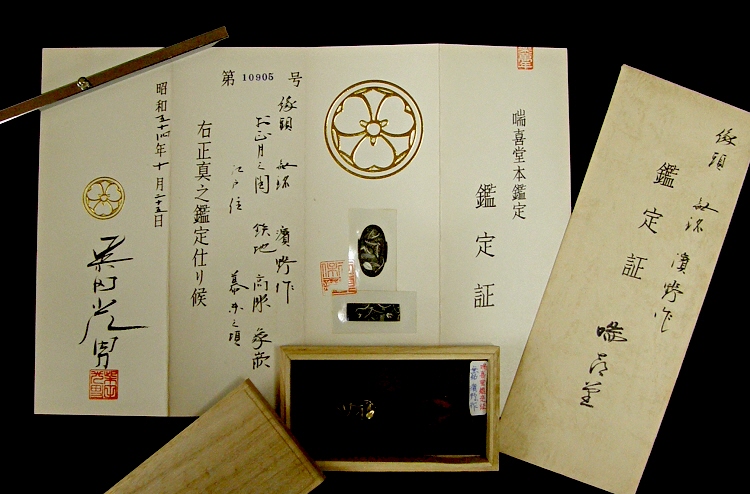 喘喜堂本鑑定
鑑定証
第 10905 号
縁頭 無銘 濱野作
お正月之図 鉄地 高彫 象嵌
江戸住 幕末之頃
右正真之鑑定仕り候
昭和五十四年十月二十五日
縁頭 無銘 濱野作
鑑定証
喘喜堂